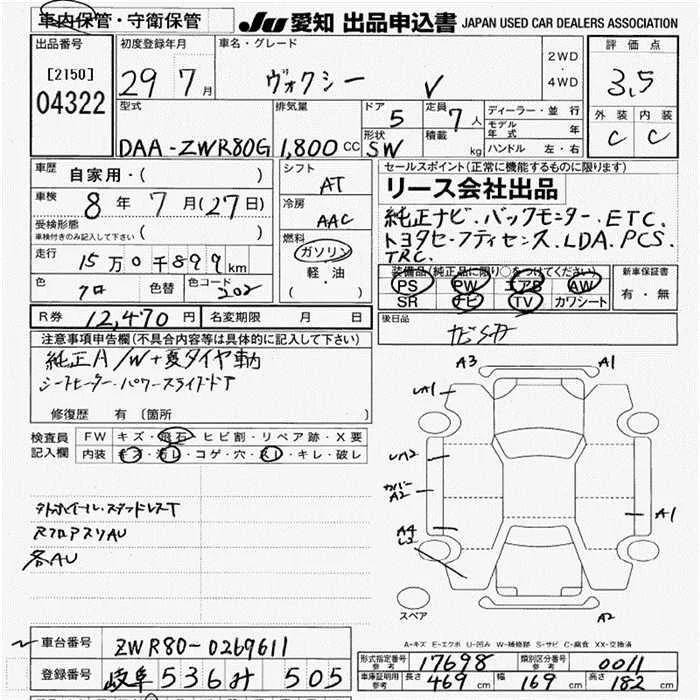 車内保管・守衛保管 JU 愛知 出品申込書 JAPAN USED CAR DEALERS ASSOCIATION
出品番号 初度登録年月 車名・グレード 評価点
[2150] 29 7月 ヴォクシー V 2WD・4WD 3.5
04322
型式 排気量 ドア 5 定員 7人 ディーラー・並行 外装 内装
モデル年式 年
DAA-ZWR80G 1,800cc 形状 SW 積載 kg ハンドル 左・右 C C
車歴 自家用・( ) シフト AT セールスポイント(正常に機能するものに限ります)
リース会社出品
車検 8年 7月(27日) 冷房 AAC
純正ナビ.バックモニター.ETC.
受検形態 ( )
車検付きのみ記入して下さい
トヨタセーフティセンス.LDA.PCS.
TRC.
走行 15万0千899km 燃料 ガソリン
軽・油
( )
装備品(純正品に限り○をつけてください) 新車保証書
色 クロ 色替 色コード 202
PS PW エアB AW 有・無
SR ナビ TV カワシート
R券 12,470円 名変期限 月 日 後日品
注意事項申告欄(不具合内容等は具体的に記入して下さい)
純正A/W+夏タイヤ
シートヒーター.パワースライドドア
修復歴 有 〔箇所 〕
検査員記入欄 FW キズ・飛石・ヒビ割・リペア跡・X要
内装 キズ・汚レ・コゲ・穴・スレ・キレ・破レ
A3 A1
UA1
UA2
カバー A2
A1
A4
A2
スペア
各AU
A-キズ E-エクボ U-凹み W-補修跡 S-サビ C-腐食 XX-交換済
車台番号 ZWR80-0269611
型式指定番号 参考 17698 類別区分番号 参考 0011
登録番号 岐阜 536 す 505
車庫証明用 参考 長さ 469cm 幅 169cm 高さ 182cm